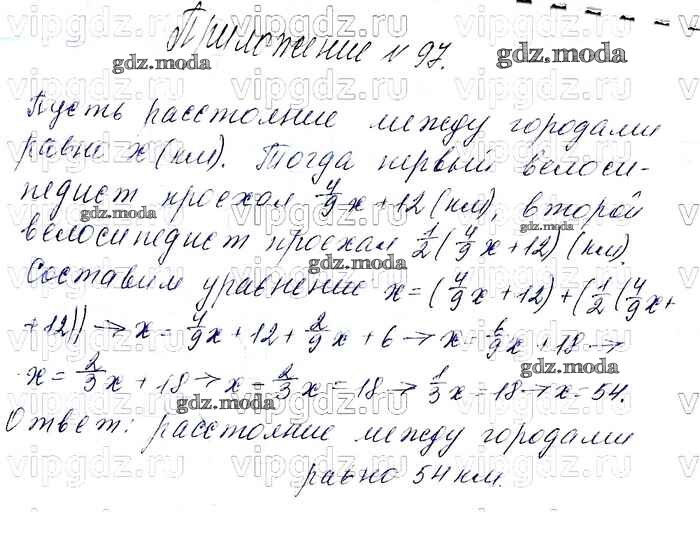 Приложение н 97.
Пусть расстояние между городами
равно x (км). Тогда первый велоси-
педист проехал 4/9 x + 12 (км), второй
велосипедист проехал 1/2 (4/9 x + 12) (км).
Составим уравнение x = (4/9 x + 12) + (1/2 (4/9 x +
+ 12)) → x = 4/9 x + 12 + 2/9 x + 6 → x = 6/9 x + 18 →
x = 2/3 x + 18 → x - 2/3 x = 18 → 1/3 x = 18 → x = 54.
Ответ: расстояние между городами
равно 54 км.
gdz.moda
vipgdz.ru